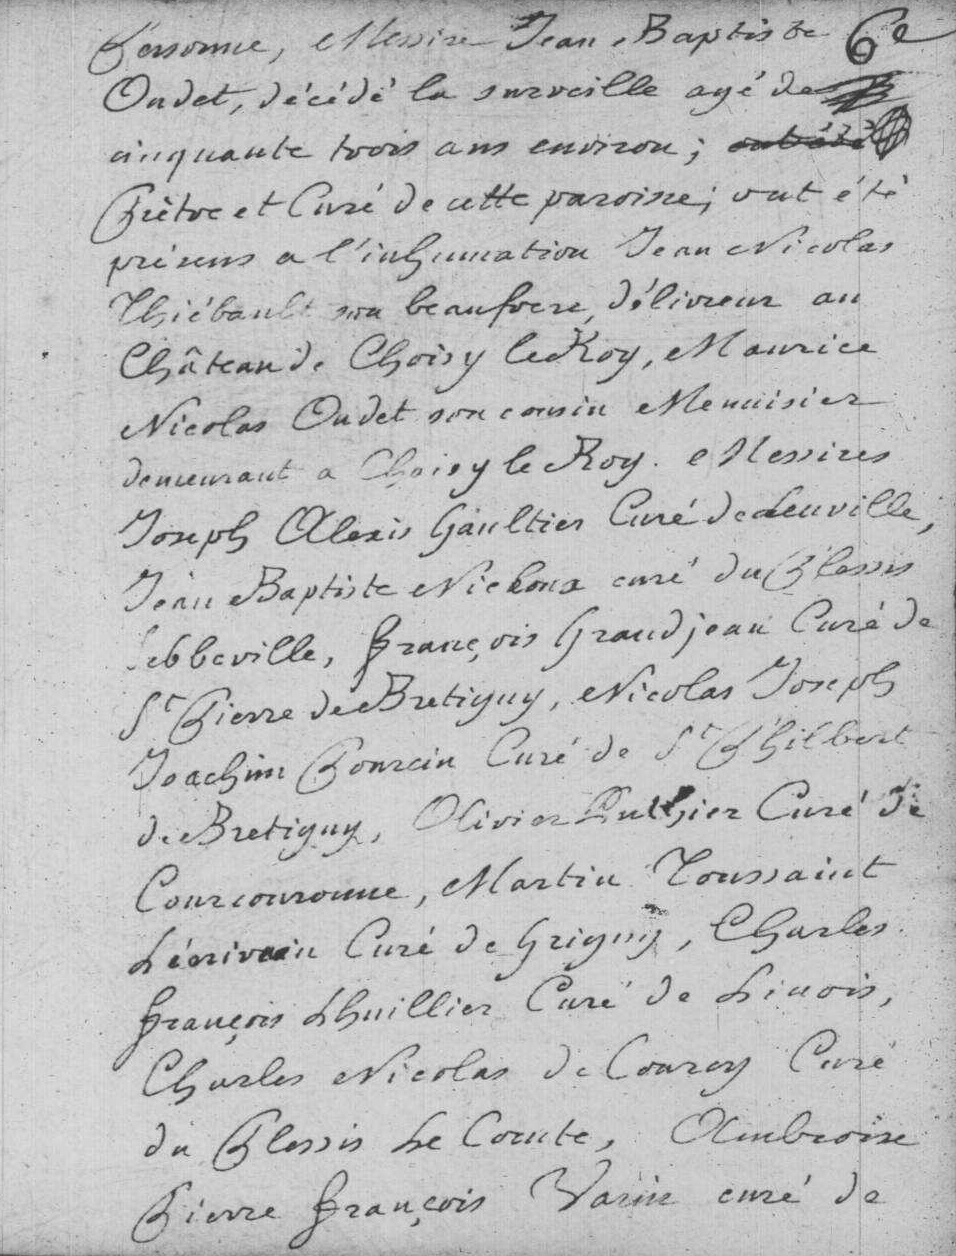 Personne, Messire Jean Baptiste 6e
Oudet, décédé la surveille agé de
cinquante trois ans environ; ont été
Prêtre et Curé de cette paroisse; ont été
présens a l'inhumation Jean Nicolas
Thiébault son beaufrere, délivreur au
Château de Choisy le Roy, Maurice
Nicolas Oudet son cousin Menuisier
demeurant a Choisy le Roy. Messires
Joseph Alexis Gaultier Curé de Leuville,
Jean Baptiste Nickoux curé du Plessis
Sebbeville, François Grandjean Curé de
St Pierre de Bretigny, Nicolas Joseph
Joachim Pourcin Curé de St Philbert
de Bretigny, Olivier Puthier Curé de
Courcouronne, Martin Toussaint
Lécrivain Curé de Grigny, Charles
François Lhuillier Curé de Linois,
Charles Nicolas de Courcy Curé
du Plessis Le Comte, Ambroise
Pierre François Varin curé de